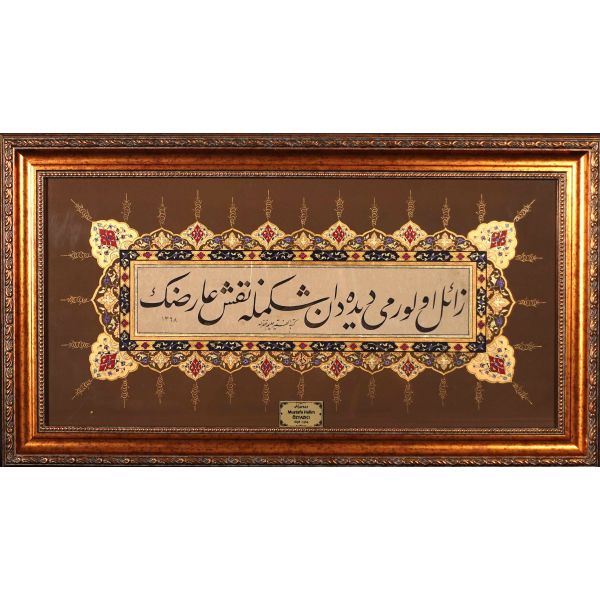 زائل اولورمی دیده دان شکمله نقش عارضنك
١٣٦٨
Mustafa Halim
ÖZYAZICI